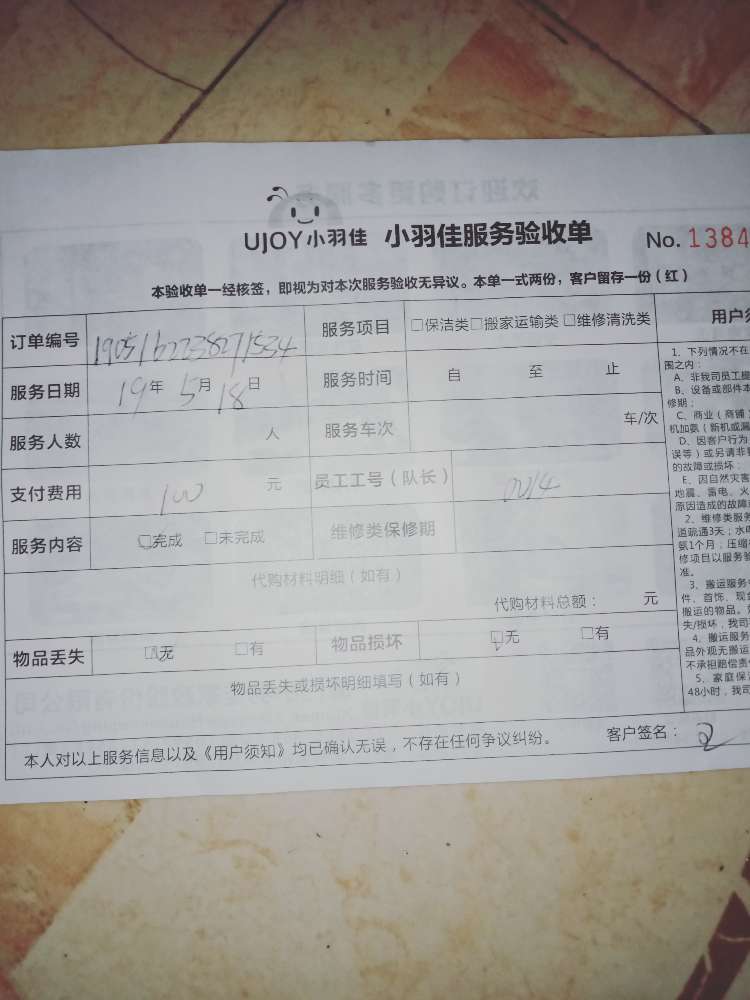 UJOY小羽佳 小羽佳服务验收单 No. 1384
本验收单一经核签，即视为对本次服务验收无异议。本单一式两份，客户留存一份（红）
订单编号 服务项目 □保洁类□搬家运输类 □维修清洗类
服务日期 19年 5月 18日 服务时间 自 至 止
服务人数 人 服务车次 车/次
支付费用 100 元 员工工号（队长） 0014
服务内容 □完成 □未完成 维修类保修期
代购材料明细（如有）
代购材料总额： 元
物品丢失 □无 □有 物品损坏 □无 □有
物品丢失或损坏明细填写（如有）
本人对以上服务信息以及《用户须知》均已确认无误，不存在任何争议纠纷。 客户签名：
用户须
1、下列情况不在
围之内：
A、非我司员工提
B、设备或部件本
修期；
C、商业（商铺）
机加氨（新机或漏
D、因客户行为
误等）或另请非
的故障或损坏；
E、因自然灾害
地震、雷电、火
原因造成的故障
2、维修类服务
道疏通3天；水
氨1个月；压缩
修项目以服务验
准。
3、搬运服务
件、首饰、现金
搬运的物品。
失/损坏，我司
4、搬运服务
品外观无搬运
不承担赔偿责
5、家庭保
48小时，我司